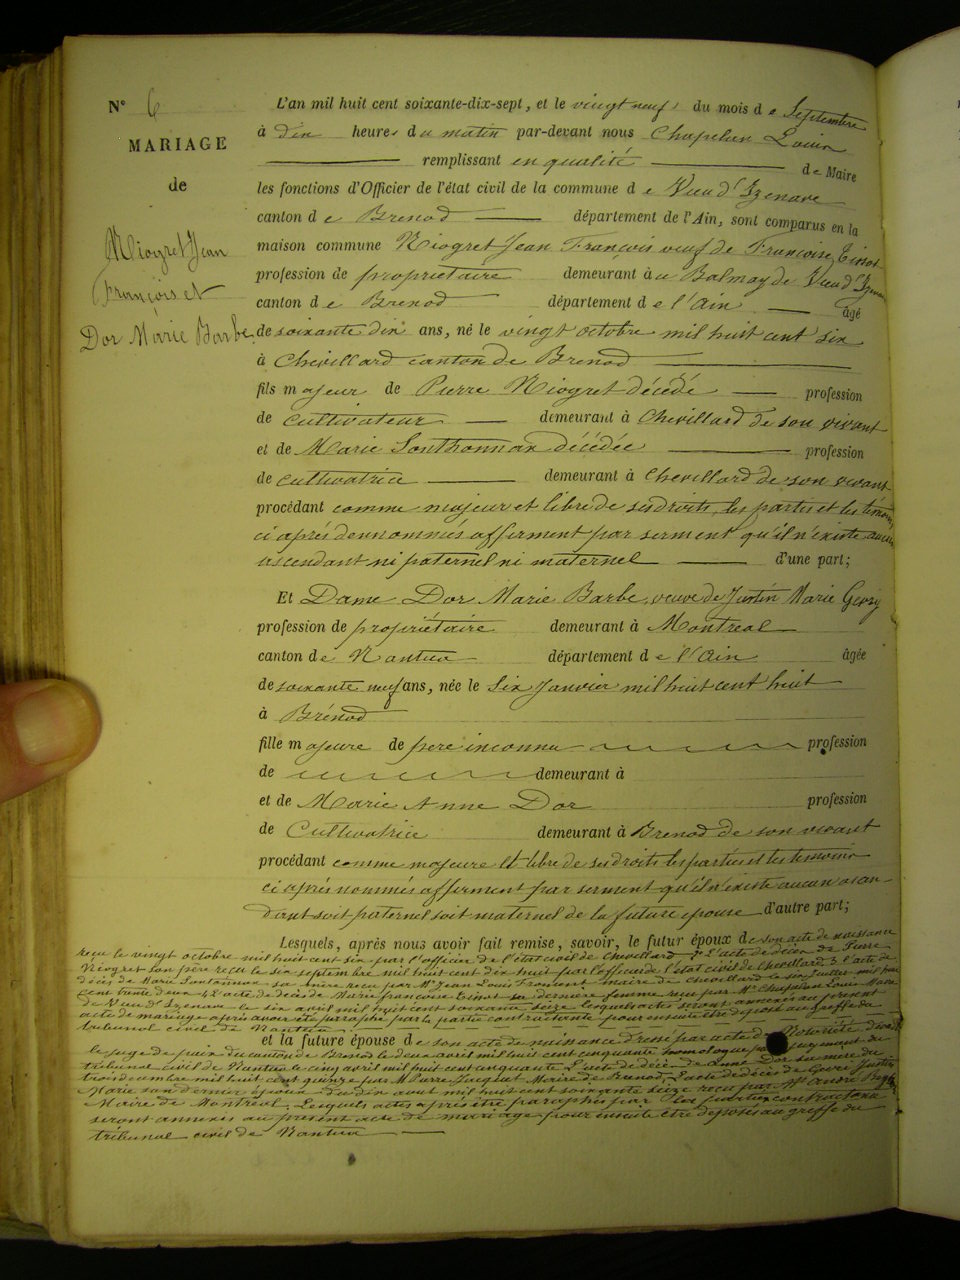 N° 6
MARIAGE
de
Niogret Jean
François et
Dor Marie Barbe
L'an mil huit cent soixante-dix-sept, et le vingt neuf du mois de Septembre
à dix heures du matin par-devant nous Chapelun Louis
remplissant en qualité de Maire
les fonctions d'Officier de l'état civil de la commune de Vieu d'Izenave
canton de Brenod département de l'Ain, sont comparus en la
maison commune Niogret Jean François veuf de Françoise
profession de propriétaire demeurant au Balmay de Vieu d'Izenave
canton de Brenod département de l'Ain âgé
de soixante dix ans, né le vingt octobre mil huit cent six
à Chevillard canton de Brenod
fils majeur de Pierre Niogret décédé profession
de cultivateur demeurant à Chevillard de son vivant
et de Marie Sonthonnax décédée profession
de cultivatrice demeurant à Chevillard de son vivant
procédant comme majeur et libre de ses droits, les parties et les témoins
ci après dennommés affirment par serment qu'il n'existe aucun
ascendant ni paternel ni maternel d'une part;
Et Dame Dor Marie Barbe, veuve de Justin Marie
profession de propriétaire demeurant à Montreal
canton de Nantua département de l'Ain âgée
de soixante neuf ans, née le Six Janvier mil huit cent huit
à Brénod
fille majeure de père inconnu profession
de demeurant à
et de Marie Anne Dor profession
de Cultivatrice demeurant à Brenod de son vivant
procédant comme majeure et libre de ses droits les parties et les temoins
ci après nommés affirment par serment qu'il n'existe aucun ascen-
dant soit paternel soit maternel de la future epouse d'autre part;
Lesquels, après nous avoir fait remise, savoir, le futur époux de son acte de naissance
reçu le vingt octobre mil huit cent six par l'officier de l'état civil de Chevillard L'acte de décès de Pierre
Niogret son père reçu le six septembre mil huit cent dix huit par l'officier de l'état civil de Chevillard 3 l'acte de
décès de Marie Sonthonnax sa mère reçu par Mr Jean Louis Froment maire de Chevillard le six Juillet mil huit
cent trente deux 4 L'acte de décès de Marie françoise sa dernière femme reçu par Mr Chapelun Louis Maire
de Vieu d'Izenave le six avril mil huit cent soixante seize lesquels actes seront annexés au présent
acte de mariage après avoir été paraphé par la partie contractante pour ensuite être déposé au greffe du
tribunal civil de Nantua
et la future épouse de son acte de naissance dressé par acte de Notoriété devant
le juge de paix du canton de Brenod le deux avril mil huit cent cinquante homologué par jugement du
tribunal civil de Nantua le cinq avril mil huit cent cinquante L'acte de décès de Anne Dor sa mère du
trois decembre mil huit cent quinze par Mr Pierre Jacquet Maire de Brenod, L'acte de décès de Justin
Marie son dernier époux du dix avril mil huit cent soixante seize reçu par Mr André
Maire de Montreal. Lesquels actes après être paraphés par les parties contractans
seront annexés au présent acte de mariage pour ensuite être déposés au greffe du
tribunal civil de Nantua